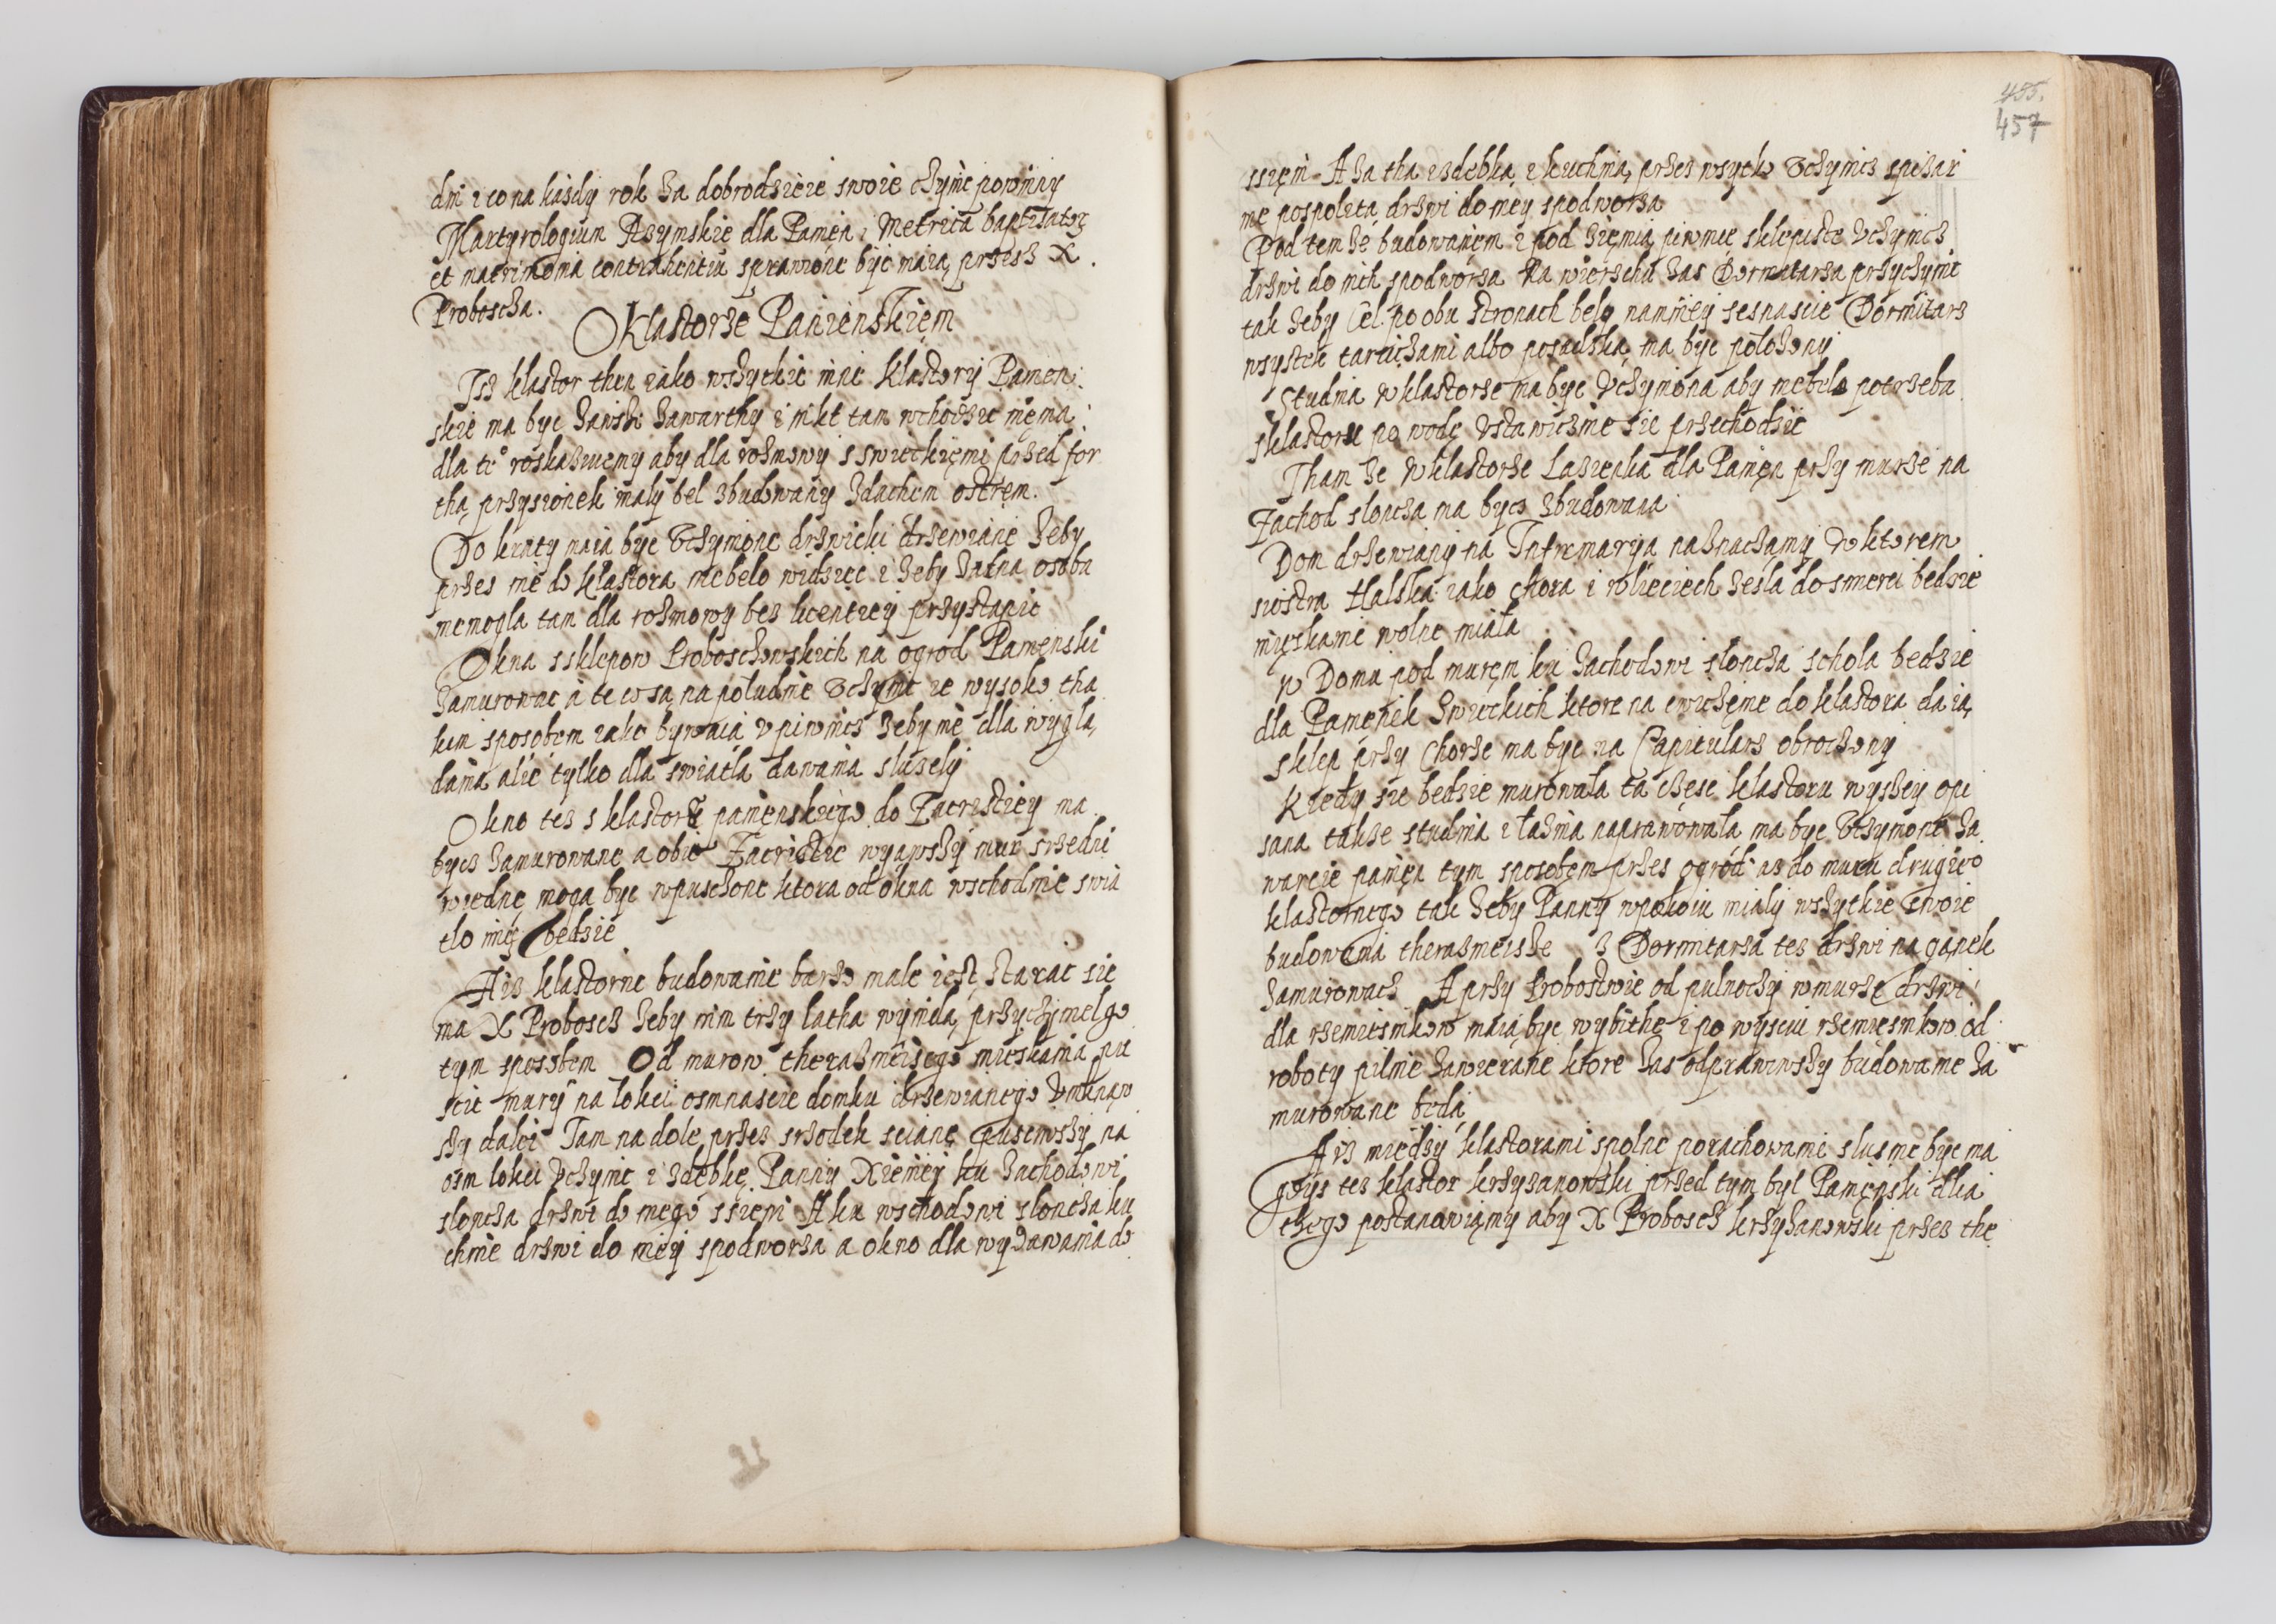 dni i co na kazdy rok za dobrodzieie swoie czynic powinny
Martyrologium Rzymskie dla Panien i Metrica baptisator.
et matrimonia contrahentiu sprawione byc maią przesz X
Proboscza.
O Klastorze Panienskiem
Isz klastor then iako wszytkie inne klastory Panien:
skie ma byc zawsze zawarthy i nikt tam wchodzic niema:
dla te° roskazuiemy aby dla rozmowy s swieckiemi przed for
thą przysionek maly bel zbudowany zdachem ostrem.
Do kraty maią byc uczynione drzwicki drzewiane zeby
przes nie do klastora niebelo widziec i zeby zadna osoba
niemogla tam dla rozmowy bes licentiey przystąpic
Okna s sklepow Proboszczowskich na ogrod Panienski
zamurowac a te co są na poludnie uczynic ie wysoko tha
kim sposobem iako bywaią v piwnicz zeby nie dla wygla,
dania alie tylko dla swiatla dawania sluzely
Okno tes s klastora panienskiego do Zacristiey ma
bycz zamurowane a obie Zacristie wyąwszy mur srzedni
wiedne moga byc wpusczone ktora od okna wschodnie swia
tlo miec bedzie
A iz klastorne budowanie barzo male iest starac sie
ma X Proboscz zeby nim trzy latha wynidą przyczynielgo
tym sposobem Od murow theraznieiszego mieskania pu
scic mury na lokci osmnascie domku drzewianego Umknąw
szy daloi Tam na dole przes srzodek scianę pusciwszy na
osm lokci uczynic izdebke Panny Xieniey ku Zachodowi
sloncza drzwi do niego s sieni A ku wschodowi sloncza ku
chnie drzwi do niey spodworza a okno dla wydawania do
455.
457
ssieni A za tha izdebką i kuchnią przes wsytko uczynicz spizar
nie pospolitą drzwi do niey spodworza
Pod tem ze budowaniem i pod ziemią piwnice sklepiste uczynicz
drzwi do nich spodworza Na wierschu zas Dormitarza przyczynic
tak zeby Cel po obu stronach belo namniey sesnascie Dormitarz
wsystek tarcicami albo posadzką ma byc polozony
Studnia w klastorze ma byc uczyniona aby niebela potrzeba
sklastora po wodę ustawicznie sie przechodzic
Tham ze w klastorze Lazienka dla Panien przy murze na
Zachod sloncza ma bycz zbudowana
Dom drzewiany na Infirmarija naznaczamy w ktorem
siostra Halska iako chora i w lieciech zesla do smierci bedzie
mieskanie wolne miala
W Domu pod murem ku zachodowi sloncza schola bedzie
dla Panienek Swieckich ktore na cwiczenie do klastora daią,
sklep przy Chorze ma byc na Capitularz obroczony
Kiedy sie bedzie murowala ta czesc klastoru wyszey opi
sana takze studnia i laznia naprawowala ma byc uczynione za
warcie panien tym sposobem przes ogród az do muru drugie°
klastornego tak zeby Panny wpokoiu mialy wszytkie swoie
budowania therazneisze z Dormitarza tes drzwi na ganek
zamurowacz A przy Probostwie od pulnoczy w murze drzwi
dla rzemiesnikow maią byc wybithe i po wysciu rzemiesnikow od
roboty pilnie zawierane ktore zas odprawiwszy budowanie za
murowane będą
A iz miedzy klastorami spolne porachowanie slusnie byc ma
gdys tes klastor krzyzanowski przed tym byl Panienski dlia
thego postanawiamy aby X Proboscz krzyzanowski przes the